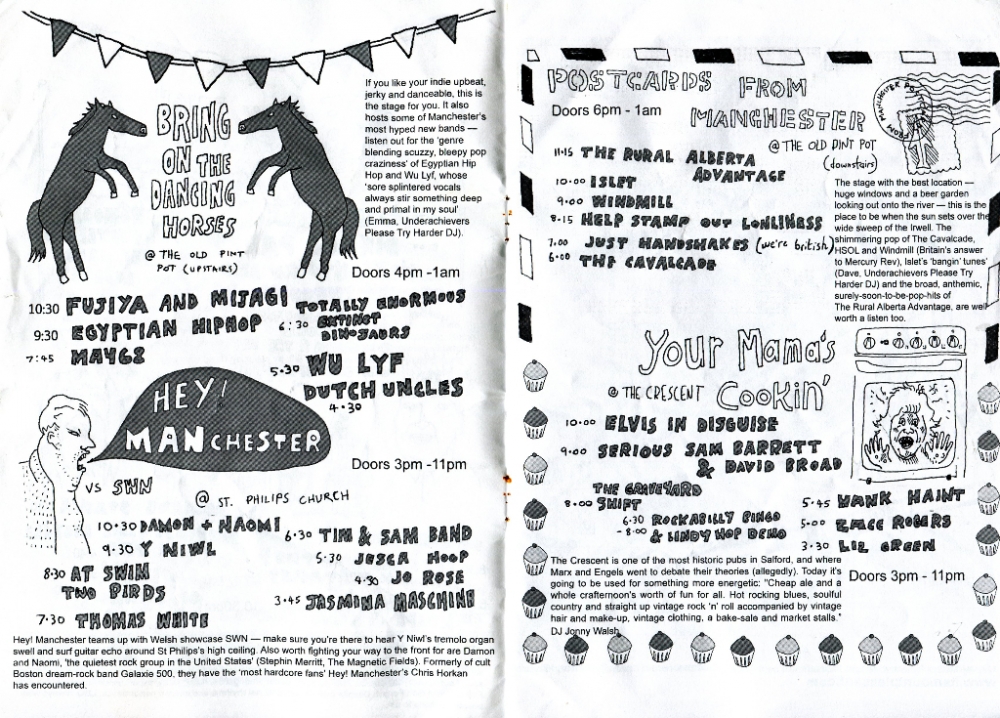 BRING
ON THE
DANCING
HORSES
@ THE OLD PINT
POT (UPSTAIRS)
If you like your indie upbeat,
jerky and danceable, this is
the stage for you. It also
hosts some of Manchester's
most hyped new bands —
listen out for the 'genre
blending scuzzy, bleepy pop
craziness' of Egyptian Hip
Hop and Wu Lyf, whose
'sore splintered vocals
always stir something deep
and primal in my soul'
(Emma, Underachievers
Please Try Harder DJ).
Doors 4pm -1am
10:30 FUJIYA AND MIJAGI
9:30 EGYPTIAN HIPHOP
7:45 MAY68
TOTALLY ENORMOUS
6:30 EXTINCT
DINOSAURS
5.30 WU LYF
DUTCH UNCLES
4.30
HEY!
MANCHESTER
VS SWN
Doors 3pm -11pm
@ ST. PHILIPS CHURCH
10.30 DAMON + NAOMI
9.30 Y NIWL
8.30 AT SWIM
TWO BIRDS
7.30 THOMAS WHITE
6.30 TIM & SAM BAND
5.30 JESCA HOOP
4.30 JO ROSE
3.45 JASMINA MASCHINA
Hey! Manchester teams up with Welsh showcase SWN — make sure you're there to hear Y Niwl's tremolo organ
swell and surf guitar echo around St Philips's high ceiling. Also worth fighting your way to the front for are Damon
and Naomi, 'the quietest rock group in the United States' (Stephin Merritt, The Magnetic Fields). Formerly of cult
Boston dream-rock band Galaxie 500, they have the 'most hardcore fans' Hey! Manchester's Chris Horkan
has encountered.
POSTCARDS FROM
MANCHESTER
Doors 6pm - 1am
@ THE OLD PINT POT
(downstairs)
FROM MANCHESTER
11.15 THE RURAL ALBERTA
ADVANTAGE
10.00 ISLET
9.00 WINDMILL
8.15 HELP STAMP OUT LONLINESS
7.00 JUST HANDSHAKES (we're british)
6.00 THE CAVALCADE
The stage with the best location —
huge windows and a beer garden
looking out onto the river — this is the
place to be when the sun sets over the
wide sweep of the Irwell. The
shimmering pop of The Cavalcade,
HSOL and Windmill (Britain's answer
to Mercury Rev), Islet's 'bangin' tunes'
(Dave, Underachievers Please Try
Harder DJ) and the broad, anthemic,
surely-soon-to-be-pop-hits of
The Rural Alberta Advantage, are well
worth a listen too.
Your Mama's
@ THE CRESCENT Cookin'
10.00 ELVIS IN DISGUISE
9.00 SERIOUS SAM BARRETT
& DAVID BROAD
THE GRAVEYARD
8.00 SHIFT
6.30 ROCKABILLY BINGO
- 8.00 & LINDY HOP DEMO
5.45 HANK HAINT
5.00 EMCC ROGERS
3.30 LIL GREEN
The Crescent is one of the most historic pubs in Salford, and where
Marx and Engels went to debate their theories (allegedly). Today it's
going to be used for something more energetic: "Cheap ale and a
whole crafternoon's worth of fun for all. Hot rocking blues, soulful
country and straight up vintage rock 'n' roll accompanied by vintage
hair and make-up, vintage clothing, a bake-sale and market stalls."
DJ Jonny Walsh
Doors 3pm - 11pm